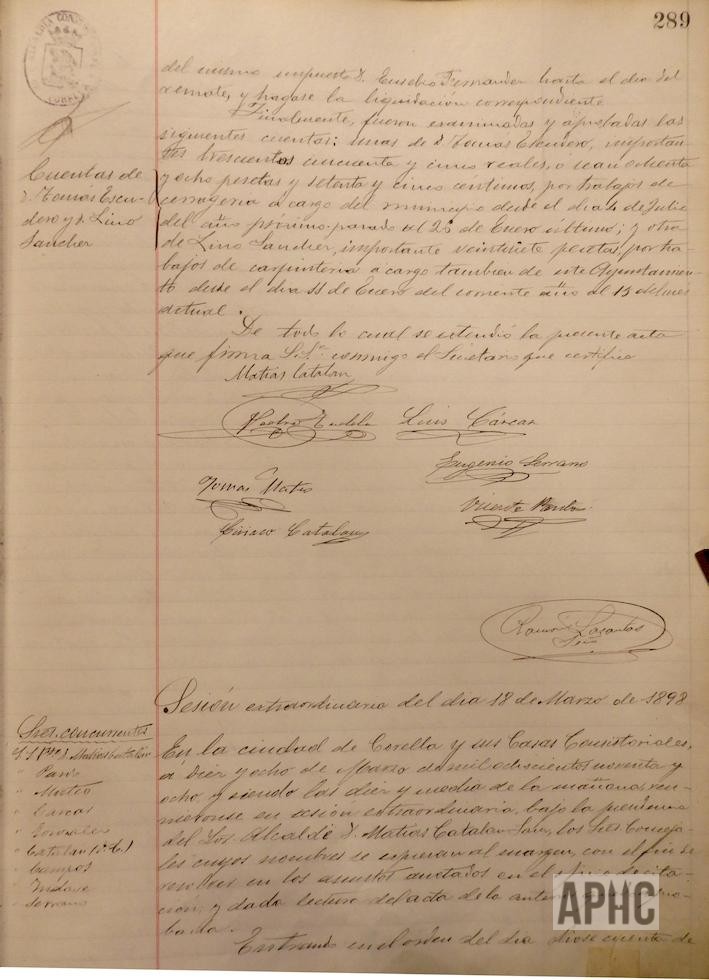 289
del mismo impuesto D. Eusebio Fernandez hasta el dia del
remate, y hágase la liquidación correspondiente
Finalmente, fueron examinadas y aprobadas las
siguientes cuentas: unas de D. Tomás Escudero, importan-
tes trescientos cincuenta y cinco reales, o sean ochenta
y ocho pesetas y setenta y cinco céntimos, por trabajos de
cerrageria a cargo del municipio desde el dia 4 de Julio
del año próximo pasado al 26 de Enero último; y otra
de Lino Sanchez, importante veintisiete pesetas, por tra-
bajos de carpinteria a cargo tambien de este Ayuntamien-
to desde el dia 11 de Enero del corriente año al 15 del mes
actual.
De todo lo cual se extendió la presente acta
que firma S.S.ª conmigo el Secretario que certifico
Cuentas de
D. Tomás Escu-
dero y D. Lino
Sanchez
Matías Catalan
Pedro Tudela Luis Cárcar
Eugenio Serrano
Tomas Mateo
Vicente Pardo
Ciriaco Catalan
Ramon Losantos
Srio
Sesión extraordinaria del dia 18 de Marzo de 1898
Sres. concurrentes
D. Matias Catalán
" Pardo
" Mateo
" Carcar
" Gonzalez
" Catalan (D. C.)
" Campos
" Tudela
" Serrano
En la ciudad de Corella y sus Casas Consistoriales,
á diez y ocho de Marzo de mil ochocientos noventa y
ocho, y siendo las diez y media de la mañana, reu-
nieronse en sesión extraordinaria, bajo la presidencia
del Sor. Alcalde D. Matías Catalan Sanz, los Sres Conceja-
les cuyos nombres se expresan al margen, con el fin de
resolver en los asuntos anotados en el de cita-
ción; y dada lectura del acta de la anterior
bada.
Entrando en el orden del dia diose cuenta de
APHC